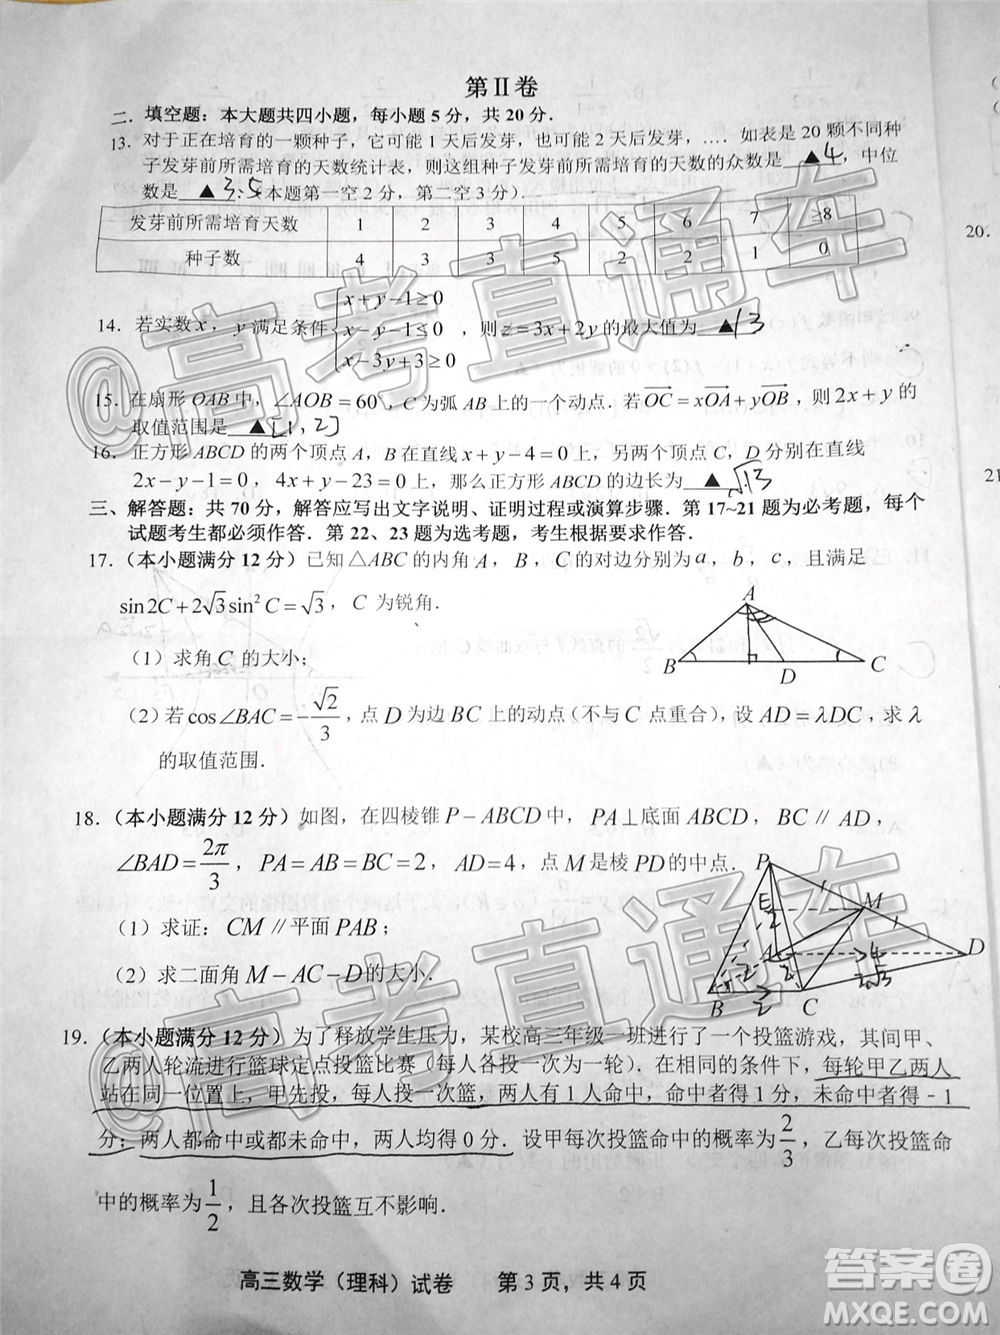 第Ⅱ卷
二．填空题：本大题共四小题，每小题5分，共20分．
13．对于正在培育的一颗种子，它可能1天后发芽，也可能2天后发芽，….如表是20颗不同种
子发芽前所需培育的天数统计表，则这组种子发芽前所需培育的天数的众数是 ▲ 4，中位
数是 ▲ 3.5（本题第一空2分，第二空3分）．
发芽前所需培育天数 1 2 3 4 5 6 7 ≥8
种子数 4 3 3 5 2 2 1 0
14．若实数x，y满足条件{x+y−1≥0 x−y−1≤0 x−3y+3≥0，则z=3x+2y的最大值为 ▲ 13
15．在扇形OAB中，∠AOB=60°，C为弧AB上的一个动点．若OC=xOA+yOB，则2x+y的
取值范围是 ▲ [1,2]
16．正方形ABCD的两个顶点A，B在直线x+y−4=0上，另两个顶点C，D分别在直线
2x−y−1=0，4x+y−23=0上，那么正方形ABCD的边长为 ▲ √13
三、解答题：共70分，解答应写出文字说明、证明过程或演算步骤．第17~21题为必考题，每个
试题考生都必须作答．第22、23题为选考题，考生根据要求作答．
17．（本小题满分12分）已知△ABC的内角A，B，C的对边分别为a，b，c，且满足
sin2C+2√3sin²C=√3，C为锐角．
（1）求角C的大小；
（2）若cos∠BAC=−√2/3，点D为边BC上的动点（不与C点重合），设AD=λDC，求λ
的取值范围．
A
B D C
18．（本小题满分12分）如图，在四棱锥P−ABCD中，PA⊥底面ABCD，BC∥AD，
∠BAD=2π/3，PA=AB=BC=2，AD=4，点M是棱PD的中点．
（1）求证：CM∥平面PAB；
（2）求二面角M−AC−D的大小．
P
E M
A D
B C
19．（本小题满分12分）为了释放学生压力，某校高三年级一班进行了一个投篮游戏，其间甲、
乙两人轮流进行篮球定点投篮比赛（每人各投一次为一轮）．在相同的条件下，每轮甲乙两人
站在同一位置上，甲先投，每人投一次篮，两人有1人命中，命中者得1分，未命中者得－1
分；两人都命中或都未命中，两人均得0分．设甲每次投篮命中的概率为2/3，乙每次投篮命
中的概率为1/2，且各次投篮互不影响．
高三数学（理科）试卷 第3页，共4页
20．
21
@高考直通车
@高考直通车
答案圈
MXQE.COM